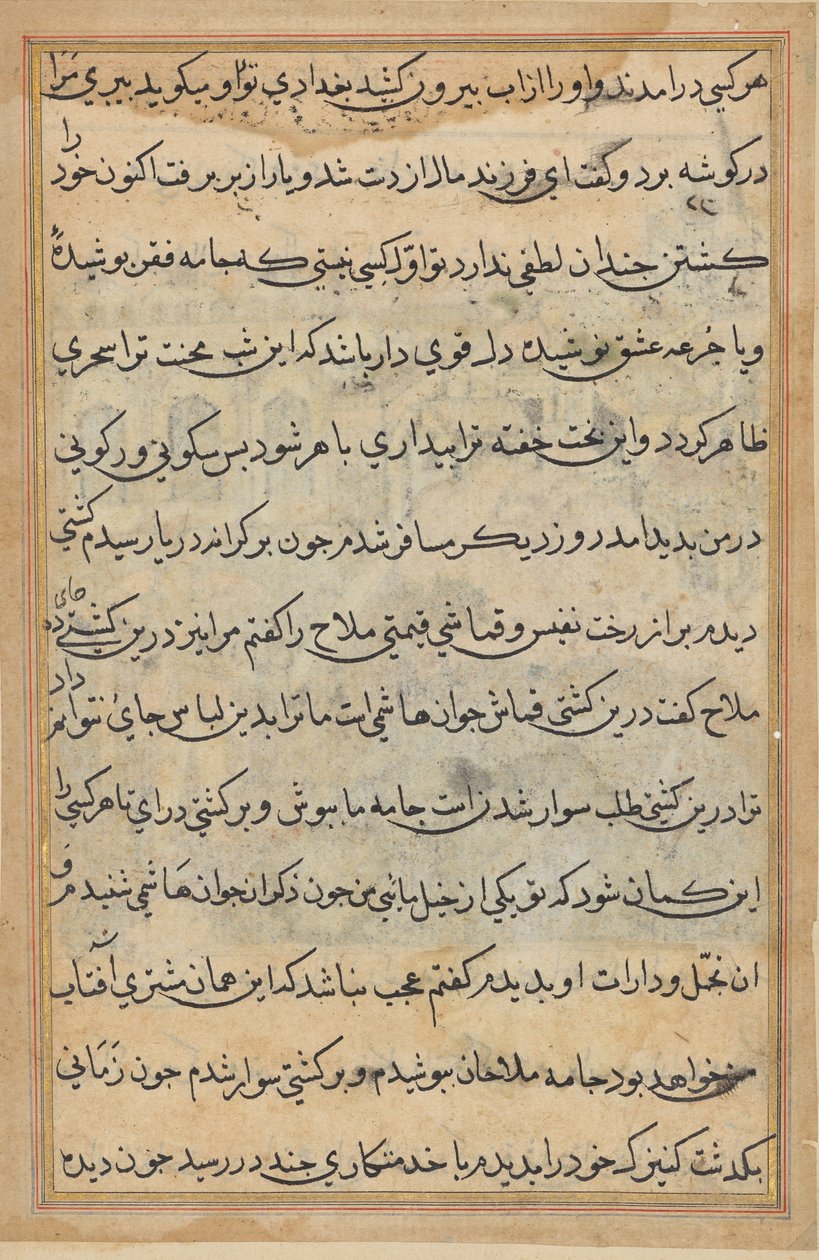 هر کسي درامدند و اورا ازاب بیرون کشید بغدادي تو او میکوید بیري مَرا
درکوشه برد و کفت اي فرزند مال از دست شد و یار از بر برفت اکنون خود را
کشتن جندان لطفي ندارد تو اوّل کسي نیستي که جامه فقر بوشیدهٔ
ویا جُرعه عشق نوشیده دل قوي دار باشد که این شب محنت ترا سحري
ظاهر کردد و این بخت خفته ترا بیداري باهر شود بس سکوني و رکوني
در من بدید امد روز دیکر مسافر شدم جون بر کرانه دریا رسیدم کشتي
دیدم بر از رخت نفیس و قماشي قیمتي ملاح را کفتم مرا نیز درین کشتي جاي ده
ملاح کفت درین کشتي قماش جوان هاشمي است ما ترا بدین لباس جائ نتوانم داد
ترا درین کشتي طلب سوار شدن است جامه ما ببوش و بر کشتي دراي تا هر کسي را
این کمان شود که تو یکي از خیل مایي من جون ذکر ان جوان هَاشمي شنیدم وَ
ان تجمّل و دارات او بدیدم کفتم عجب نباشد که این همان مشتري آفتاب
من خواهد بود جامه ملاحان ببوشیدم و بر کشتي سوار شدم جون زَمَاني
بکذشت کنیزک خود را بدیدم با خدمتکاري جند در رسید جون دیده